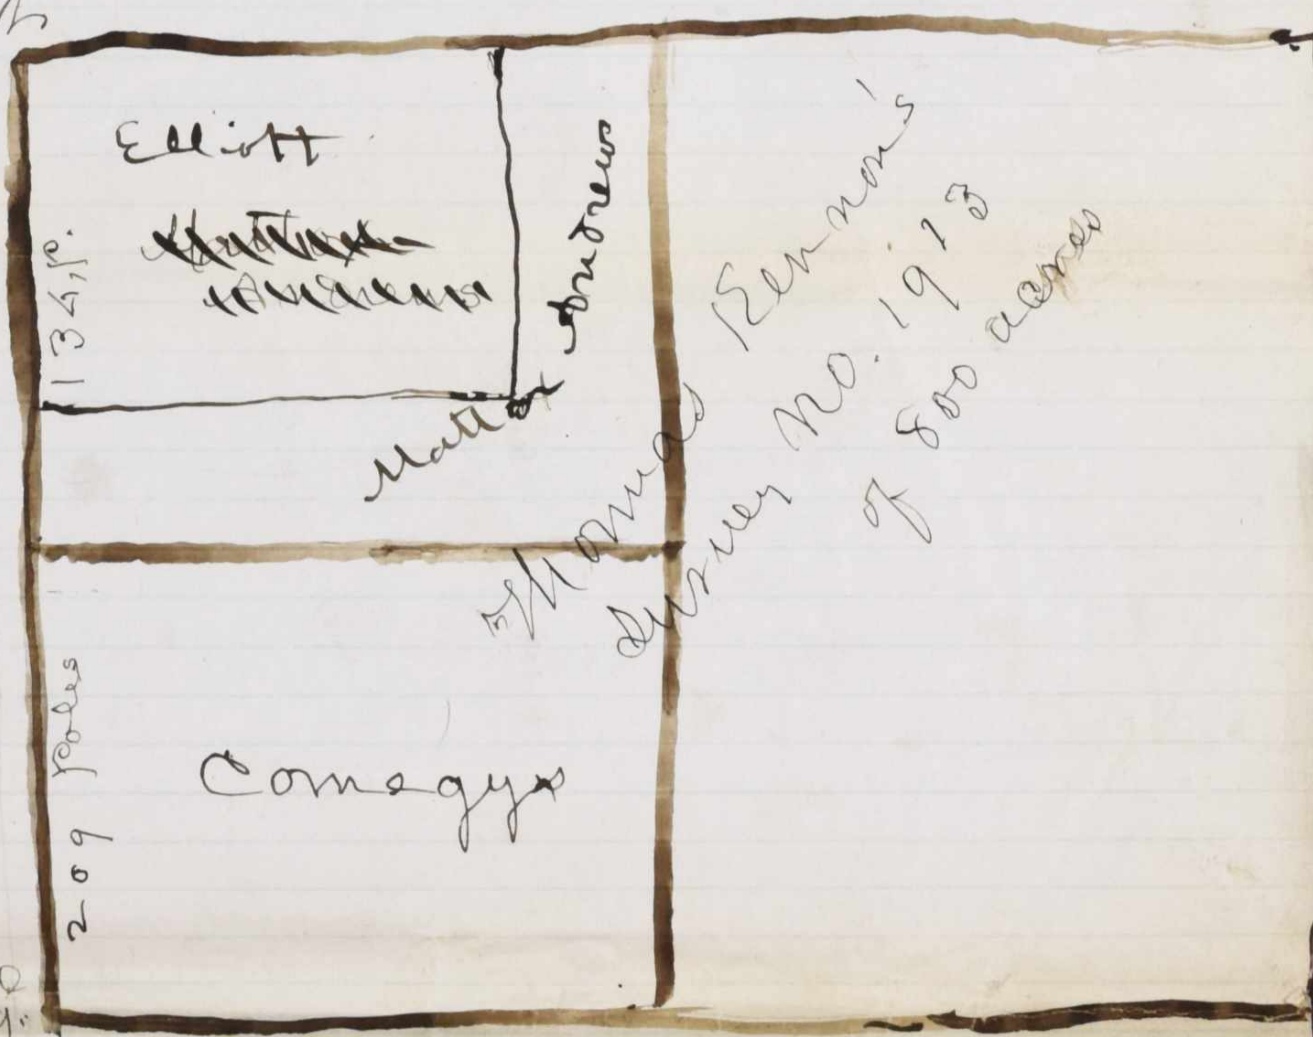 Elliott
134 p.
Matt Andrews
Thomas Kennon's
Survey No. 1913
of 800 acres
209 Poles
Comegys